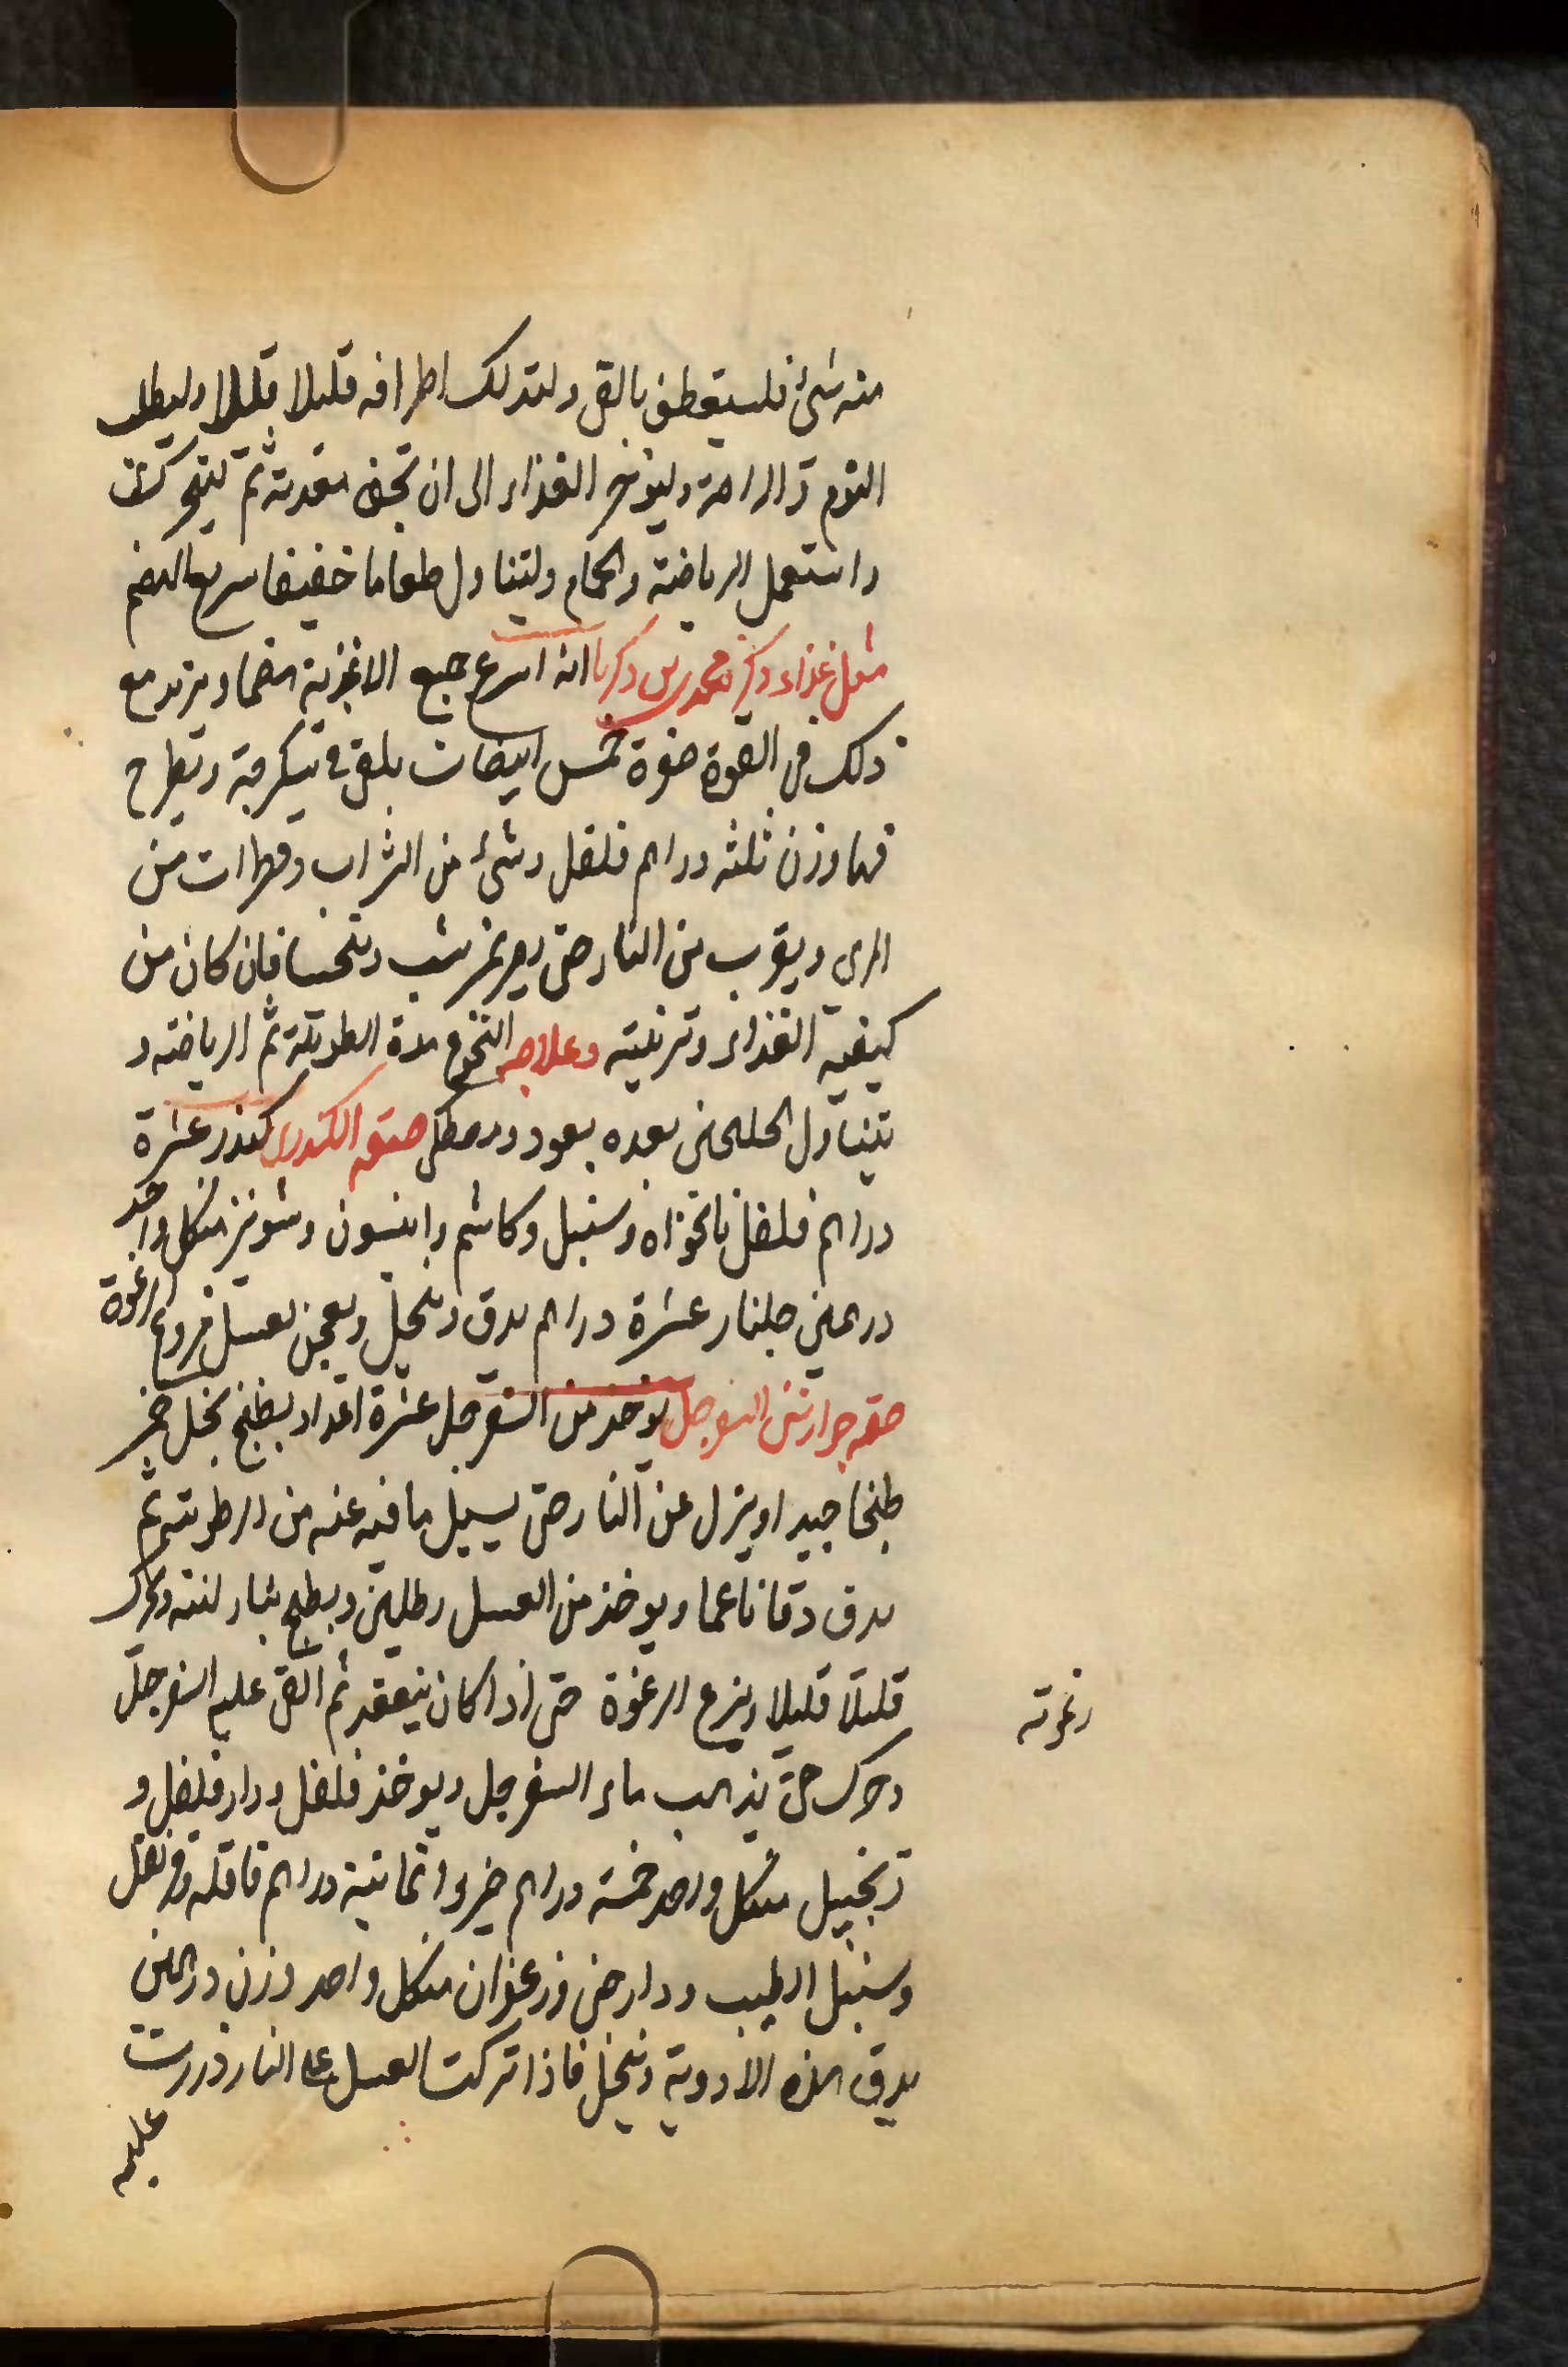 منه شئ فليستعطف بالقئ ولتدلك اطرافه قليلا قليلا وليطلب
النوم و الراحة وليؤخر الغذاء الى ان تجف معدته ثم ليتحرك
واستعمل الرياضة والحمام وليتناول طعاما خفيفا سريع الهضم
مثل غذاء ذكر محمد بن زكريا انه اسرع جميع الاغذية هضما ويزيد مع
ذلك فى القوة صفرة خمس ابيضات يلقى فى سكرجة ويطرح
فيها وزن ثلثه دراهم فلفل وشئ من الشراب وقطرات من
المرى ويقرب من النار حتى يصير نمرشت ويتحسا فان كان من
كيفية الغذاء وترتيبه وعلاجه النوع مدة الطويلة ثم الرياضة و
تتناول الجلنجبين بعده بعود ومصطكى صفة الكندرى كندر عشرة
دراهم فلفل نانخواه وسنبل وكاشم وانيسون وشونيز من كل واحد
درهمين جلنار عشرة دراهم يدق وينخل ويعجن بعسل منزوع الرغوة
صفة جوارشن السفرجل يؤخذ من السفرجل عشرة اعداد يطبخ بخل خمر
طبخا جيدا وينزل عن النار حتى يسيل ما فيه عنه من الرطوبة ثم
يدق دقا ناعما ويوخذ من العسل رطلين ويطبخ بنار لينة ويحرك
قليلا قليلا وينزع الرغوة حتى اذا كان ينعقد ثم القى عليه السفرجل
رغوته
وحرك حتى يذهب ماء السفرجل ويوخذ فلفل ودار فلفل و
زنجبيل من كل واحد خمسة دراهم خير بوا ثمانية دراهم قاقلة وقرنفل
وسنبل الطيب ودارصينى وزعفران من كل واحد وزن درهمين
يدق هذه الادوية وينخل فاذا تركت العسل على النار ذررت
عليه